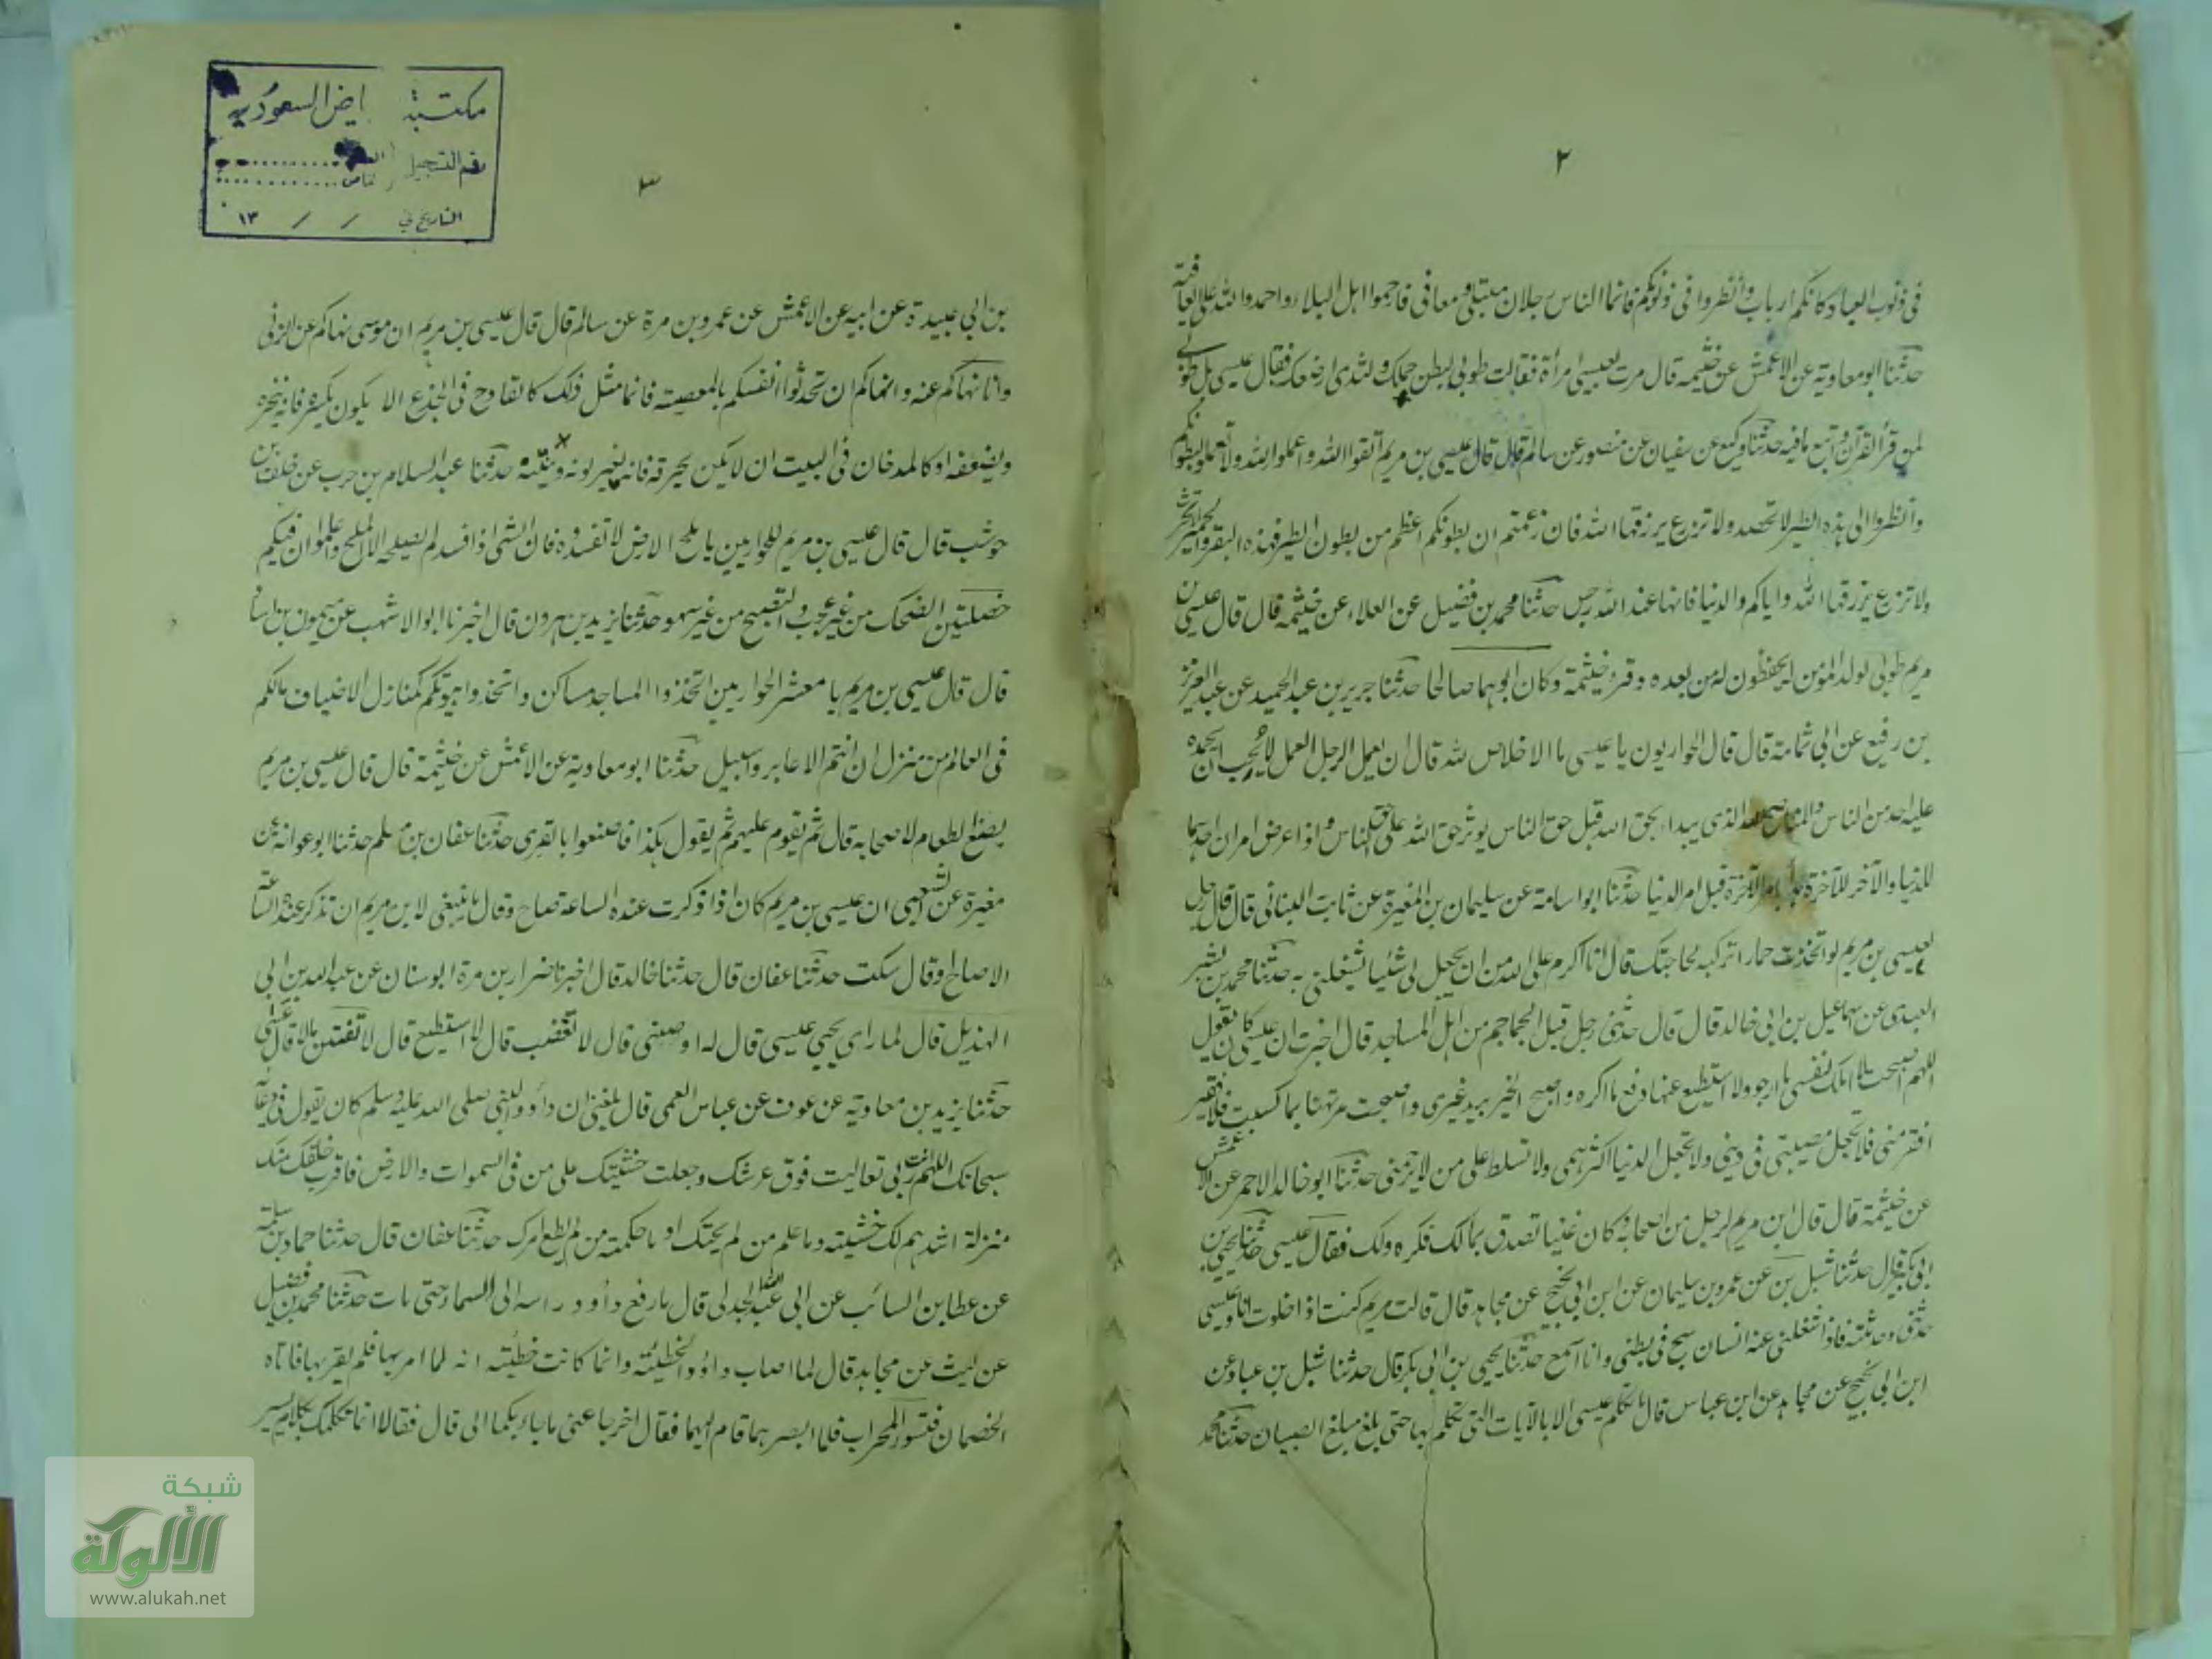 ٢
في ذنوب العباد كانكم ارباب وانظروا في ذنوبكم فانما الناس رجلان مبتلى ومعافى فارحموا اهل البلاء واحمدوا الله على العافية
حدثنا ابو معاوية عن الاعمش عن خيثمه قال مرت بعيسى امرأة فقالت طوبى لبطن حملك ولثدى ارضعك فقال عيسى بل طوبى
لمن قرأ القرآن واتبع ما فيه حدثنا وكيع عن سفيان عن منصور عن سالم قال قال عيسى بن مريم اتقوا الله واعملوا لله ولا تعملوا لبطونكم
وانظروا الى هذه الطير لا تحصد ولا تزرع يرزقها الله فان زعمتم ان بطونكم اعظم من بطون الطير فهذه البقر والحمير لا تحرث
ولا تزرع يرزقها الله واياكم والدنيا فانها عند الله رجس حدثنا محمد بن فضيل عن العلاء عن خيثمه قال قال عيسى بن
مريم طوبى لولد المؤمن يحفظون له من بعده وقرء خيثمة وكان ابوهما صالحا حدثنا جرير بن عبد الحميد عن عبد العزيز
بن رفيع عن ابي ثمامة قال قال الحواريون يا عيسى ما الاخلاص لله قال ان يعمل الرجل العمل لا يحب ان يحمده
عليه احد من الناس والمناصح لله الذي يبدا بحق الله قبل حق الناس يوثر حق الله على حق الناس واذا عرض امران احدهما
للدنيا والآخر للآخرة بدأ بامر الآخرة قبل امر الدنيا حدثنا ابو اسامة عن سليمان بن المغيرة عن ثابت البناني قال قال رجل
لعيسى بن مريم لو اتخذت حمارا تركبه لحاجتك قال انا اكرم على الله من ان يجعل لي شئيا يشغلني به حدثنا محمد بن بشير
العبدى عن اسماعيل بن ابي خالد قال قال حدثني رجل قبل الجماجم من اهل المساجد قال اخبرت ان عيسى كان يقول
اللهم اصبحت لا املك لنفسى ما ارجو ولا استطيع عنها دفع ما اكره واصبح الخير بيد غيرى واصبحت مرتهنا بما كسبت فلا فقير
افقر منى فلا تجعل مصيبتى في دينى ولا تجعل الدنيا اكثر همى ولا تسلط على من لا يرحمنى حدثنا ابو خالد الاحمر عن الاعمش
عن خيثمة قال قال ابن مريم لرجل من اصحابه وكان غنيا تصدق بمالك فكره ذلك فقال عيسى حدثنا يحيى بن
ابي بكر قال حدثنا شبل بن عن عمرو بن سليمان عن ابن ابي نجيح عن مجاهد قال قالت مريم كنت اذا خلوت انا وعيسى
حدثنى وحدثته فاذا شغلنى عنه انسان سبح في بطنى وانا اسمع حدثنا يحيى بن ابي بكر قال حدثنا شبل بن عباد عن
ابن ابي نجيح عن مجاهد عن ابن عباس قال ما تكلم عيسى الا بالآيات التي تكلم بها حتى بلغ مبلغ الصبيان حدثنا محمد
مكتبة اض السعودية
رقم التسجيل
التاريخ في / / ١٣
٣
بن ابي عبيدة عن ابيه عن الاعمش عن عمرو بن مرة عن سالم قال قال عيسى بن مريم ان موسى نهاكم عن الزنى
وانا انهاكم عنه وانهاكم ان تحدثوا انفسكم بالمعصية فانما مثل ذلك كالقادح في الجذع الا يكون يكسره فانه ينخره
ويضعفه او كالمدخان في البيت ان لا يكن يحرقه فانه يغير لونه وينتنه حدثنا عبد السلام بن حرب عن خلف بن
حوشب قال قال عيسى بن مريم للحواريين يا ملح الارض لا تفسدوه فان الشئ اذا فسد لم يصلحه الا الملح واعلموا ان فيكم
خصلتين الضحك من غير عجب والتصبح من غير سهو حدثنا يزيد بن هرون قال اخبرنا ابو الاشهب عن ميمون بن استا
قال قال عيسى بن مريم يا معشر الحواريين اتخذوا المساجد مساكن واتخذوا بيوتكم كمنازل الاضياف مالكم
في العالم من منزل ان انتم الا عابر وسبيل حدثنا ابو معاوية عن الاعمش عن خيثمة قال قال عيسى بن مريم
يصنع لطعام لاصحابه قال ثم يقوم عليهم ثم يقول هكذا فاصنعوا بالقرى حدثنا عفان بن مسلم حدثنا ابو عوانه عن
مغيرة عن الشعبى ان عيسى بن مريم كان اذا ذكرت عنده الساعة صاح وقال ما ينبغى لابن مريم ان تذكر عنده الساعة
الا صاح او قال سكت حدثنا عفان قال حدثنا خالد قال اخبرنا ضرار بن مرة ابو سنان عن عبد الله بن ابي
الهذيل قال لما راى يحيى عيسى قال له اوصنى قال لا تغضب قال لا استطيع قال لا تفتتن مالا قال عسى
حدثنا يزيد بن معاوية عن عوف عن عباس العمى قال بلغنى ان داؤد النبى صلى الله عليه وسلم كان يقول في دعائه
سبحانك اللهم انت ربى تعاليت فوق عرشك وجعلت خشيتك على من في السموات والارض فاقرب خلقك منك
منزلة اشدهم لك خشيته وما علم من لم يخشك او ما حكمة من لم يطع امرك حدثنا عفان قال حدثنا حماد بن سلمة
عن عطا بن السائب عن ابي عبد الله الجدلى قال ما رفع داؤد راسه الى السماء حتى مات حدثنا محمد بن فضيل
عن ليث عن مجاهد قال لما اصاب داؤد الخطيئة وانما كانت خطيئته انه لما امر بها فلم يقربها فاتاه
الخصمان فتسور المحراب فلما ابصرهما قام اليهما فقال اخرجا عنى ما جاء بكما الى قال فقالا انما نكلمك بكلام يسير
شبكة
الألوكة
www.alukah.net